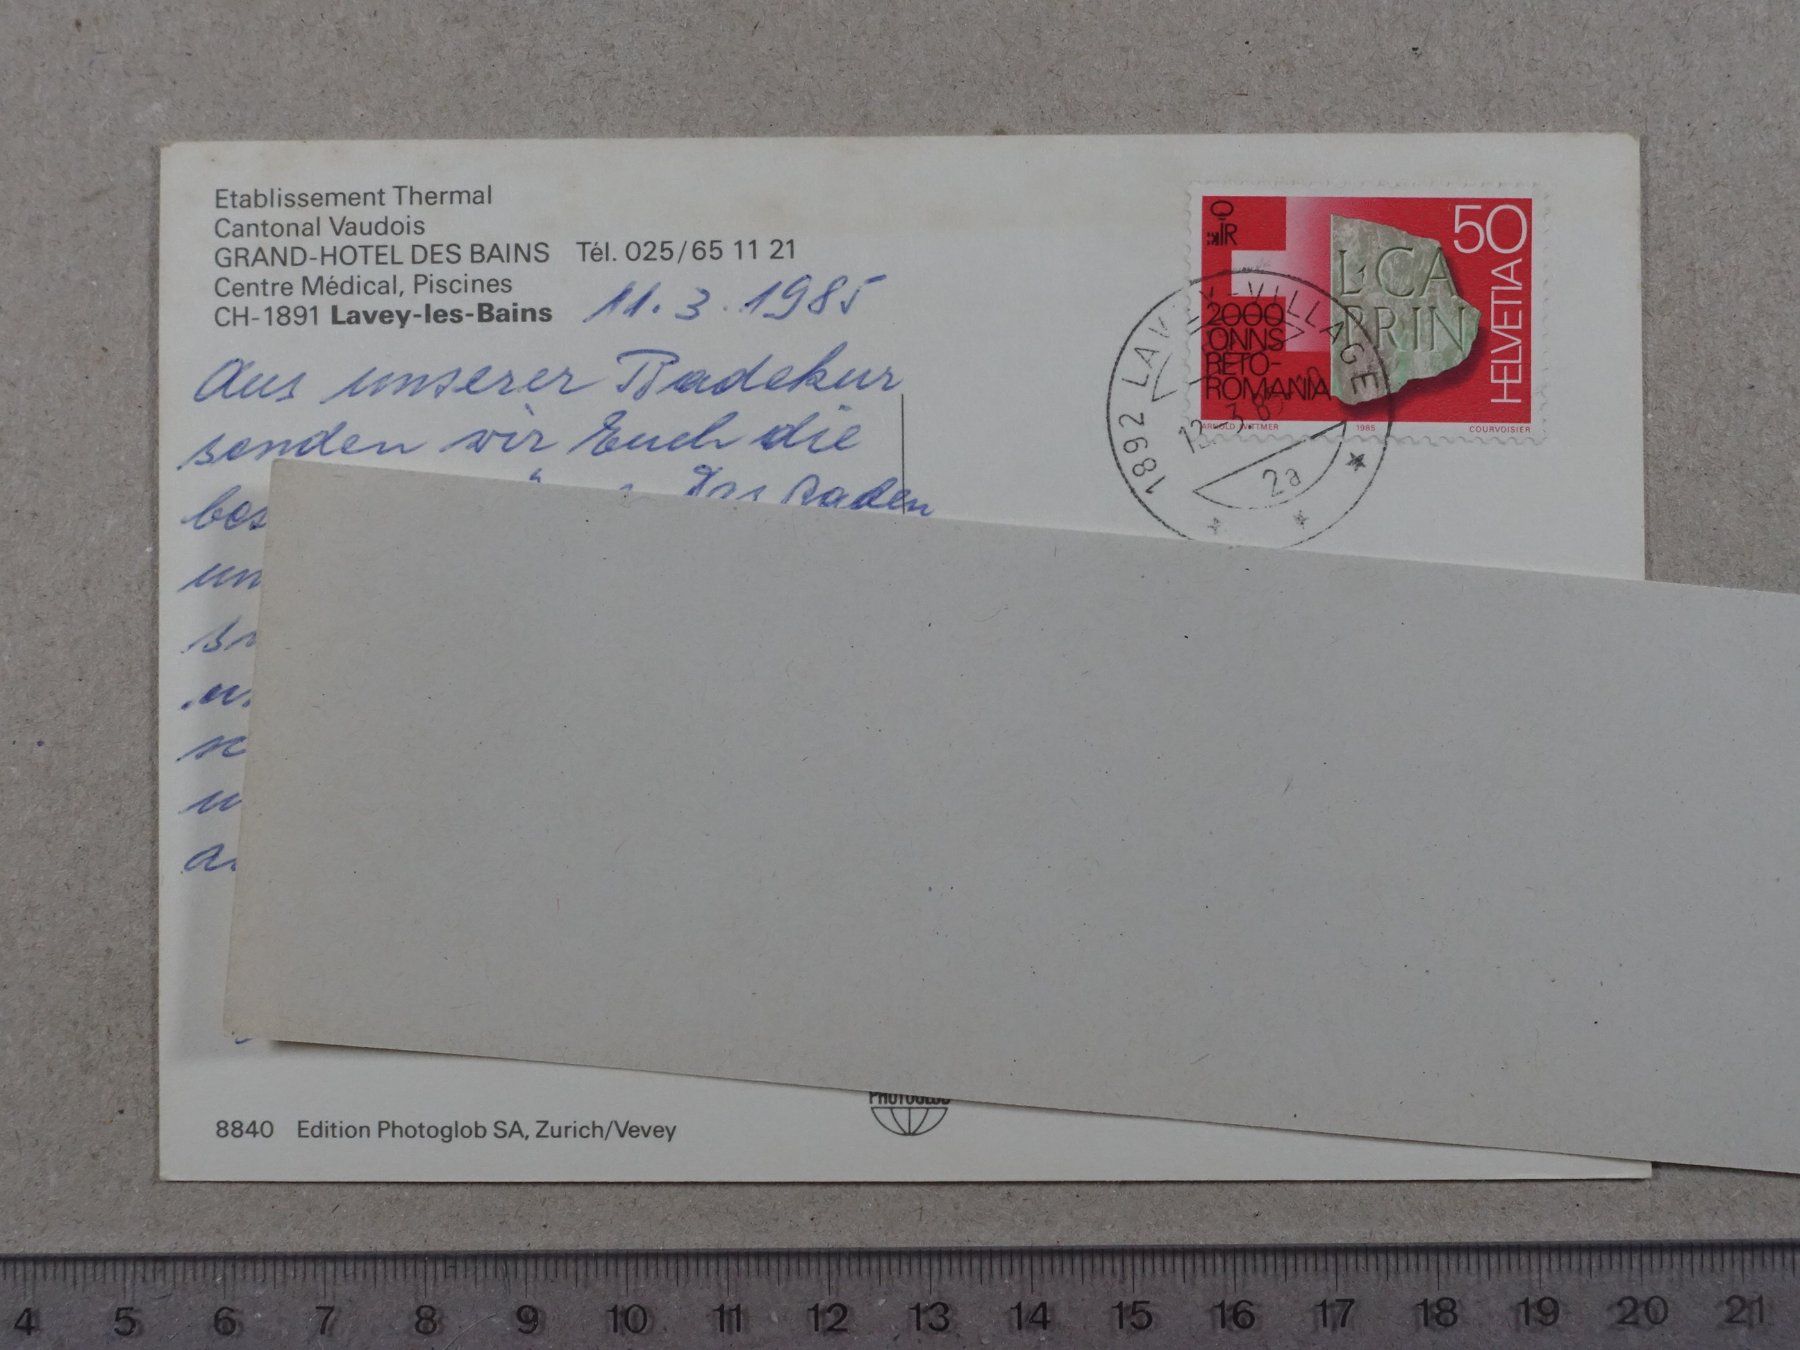 Etablissement Thermal
Cantonal Vaudois
GRAND-HOTEL DES BAINS Tél. 025/65 11 21
Centre Médical, Piscines
CH-1891 Lavey-les-Bains
11.3.1985
Aus unserer Badekur
senden wir Euch die
Baden
50
HELVETIA
L·CA
PRIN
2000
ONNS
RETO-
ROMANIA
ARNOLD WITTMER 1985 COURVOISIER
1892 LAVEY-VILLAGE
2a
PHOTOGLOB
8840 Edition Photoglob SA, Zurich/Vevey
4 5 6 7 8 9 10 11 12 13 14 15 16 17 18 19 20 21